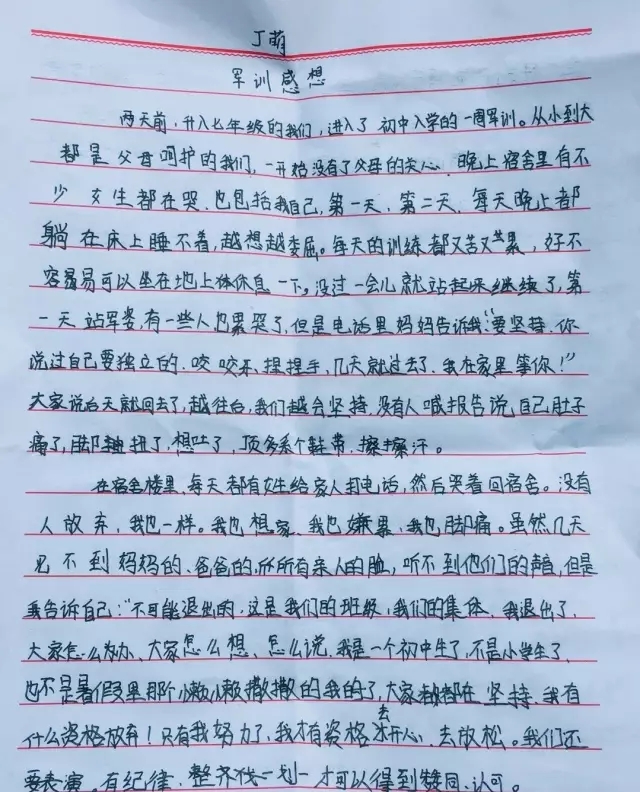 丁萌
军训感想
两天前,升入七年级的我们,进入了初中入学的一周军训。从小到大
都是父母呵护的我们,一开始没有了父母的关心,晚上宿舍里有不
少女生都在哭,也包括我自己,第一天、第二天、每天晚上都
躺在床上睡不着,越想越委屈。每天的训练都又苦又累,好不
容易可以坐在地上休息一下。没过一会儿就站起来继续了,第
一天站军姿,有一些人也累哭了,但是电话里妈妈告诉我:“要坚持,你
说过自己要独立的,咬咬牙、捏捏手,几天就过去了,我在家里等你!”
大家说后天就回去了,越往后,我们越会坚持,没有人喊报告说自己肚子
痛了,脚扭了,想吐了,顶多系个鞋带、擦擦汗。
在宿舍楼里,每天都有女生给家人打电话,然后哭着回宿舍。没有
人放弃,我也一样。我也想家、我也嫌累、我也脚痛。虽然几天
见不到妈妈的、爸爸的,所有亲人的脸,听不到他们的声音,但是
我告诉自己:“不可能退出的,这是我们的班级,我们的集体,我退出了,
大家怎么办、大家怎么想、怎么说,我是一个初中生了,不是小学生了,
也不是暑假里那个懒懒散散的我的了,大家都在坚持,我有
什么资格放弃!只有我努力了,我才有资格去开心、去放松。我们还
要表演,有纪律、整齐伐一划一才可以得到赞同、认可。